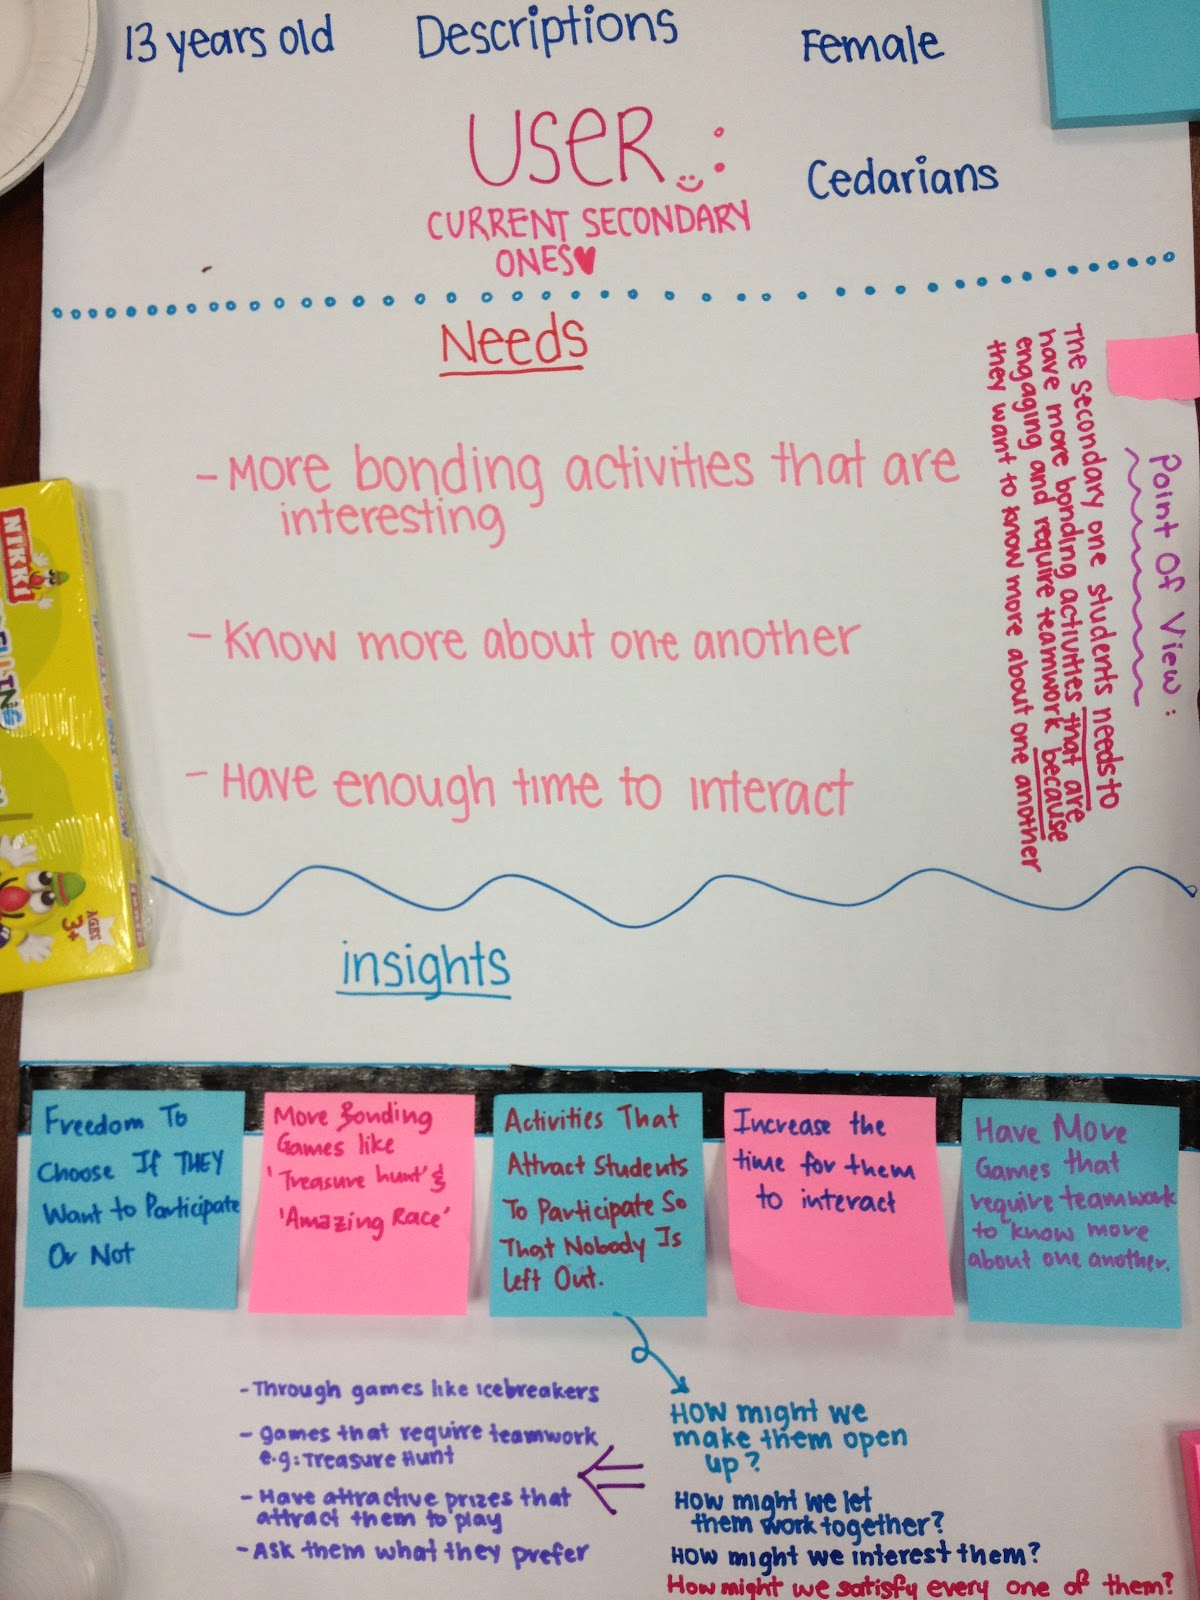 13 years old
Descriptions
Female
USER :
Cedarians
CURRENT SECONDARY
ONES
Needs
- More bonding activities that are
interesting
- Know more about one another
- Have enough time to interact
Point Of View :
The secondary one students needs to
have more bonding activities that are
engaging and require teamwork because
they want to know more about one another
NIKKI
MODELLING MATERIAL
AGES
3+
insights
Freedom To
Choose If THEY
Want to Participate
Or Not
More Bonding
Games like
'Treasure hunt' &
'Amazing Race'
Activities That
Attract Students
To Participate So
That Nobody Is
Left Out.
Increase the
time for them
to interact
Have More
Games that
require teamwork
to know more
about one another.
- Through games like icebreakers
- games that require teamwork
e.g: Treasure Hunt
- Have attractive prizes that
attract them to play
- Ask them what they prefer
HOW might we
make them open
up?
HOW might we let
them work together?
HOW might we interest them?
How might we satisfy every one of them?